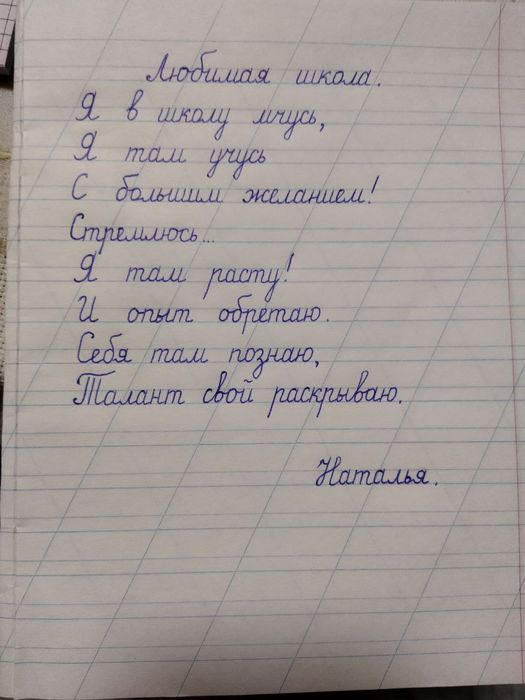 Любимая школа.
Я в школу мчусь,
Я там учусь
С большим желанием!
Стремлюсь...
Я там расту!
И опыт обретаю.
Себя там познаю,
Талант свой раскрываю.
Наталья.